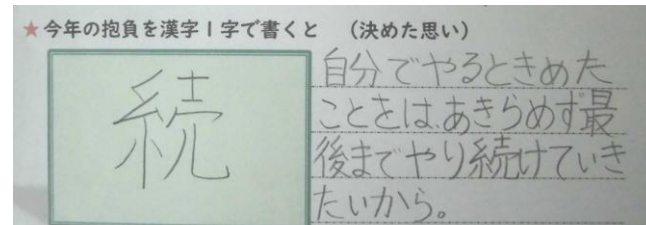 ★今年の抱負を漢字1字で書くと （決めた思い）
続
自分でやるときめた
ことをは、あきらめず最
後までやり続けていき
たいから。